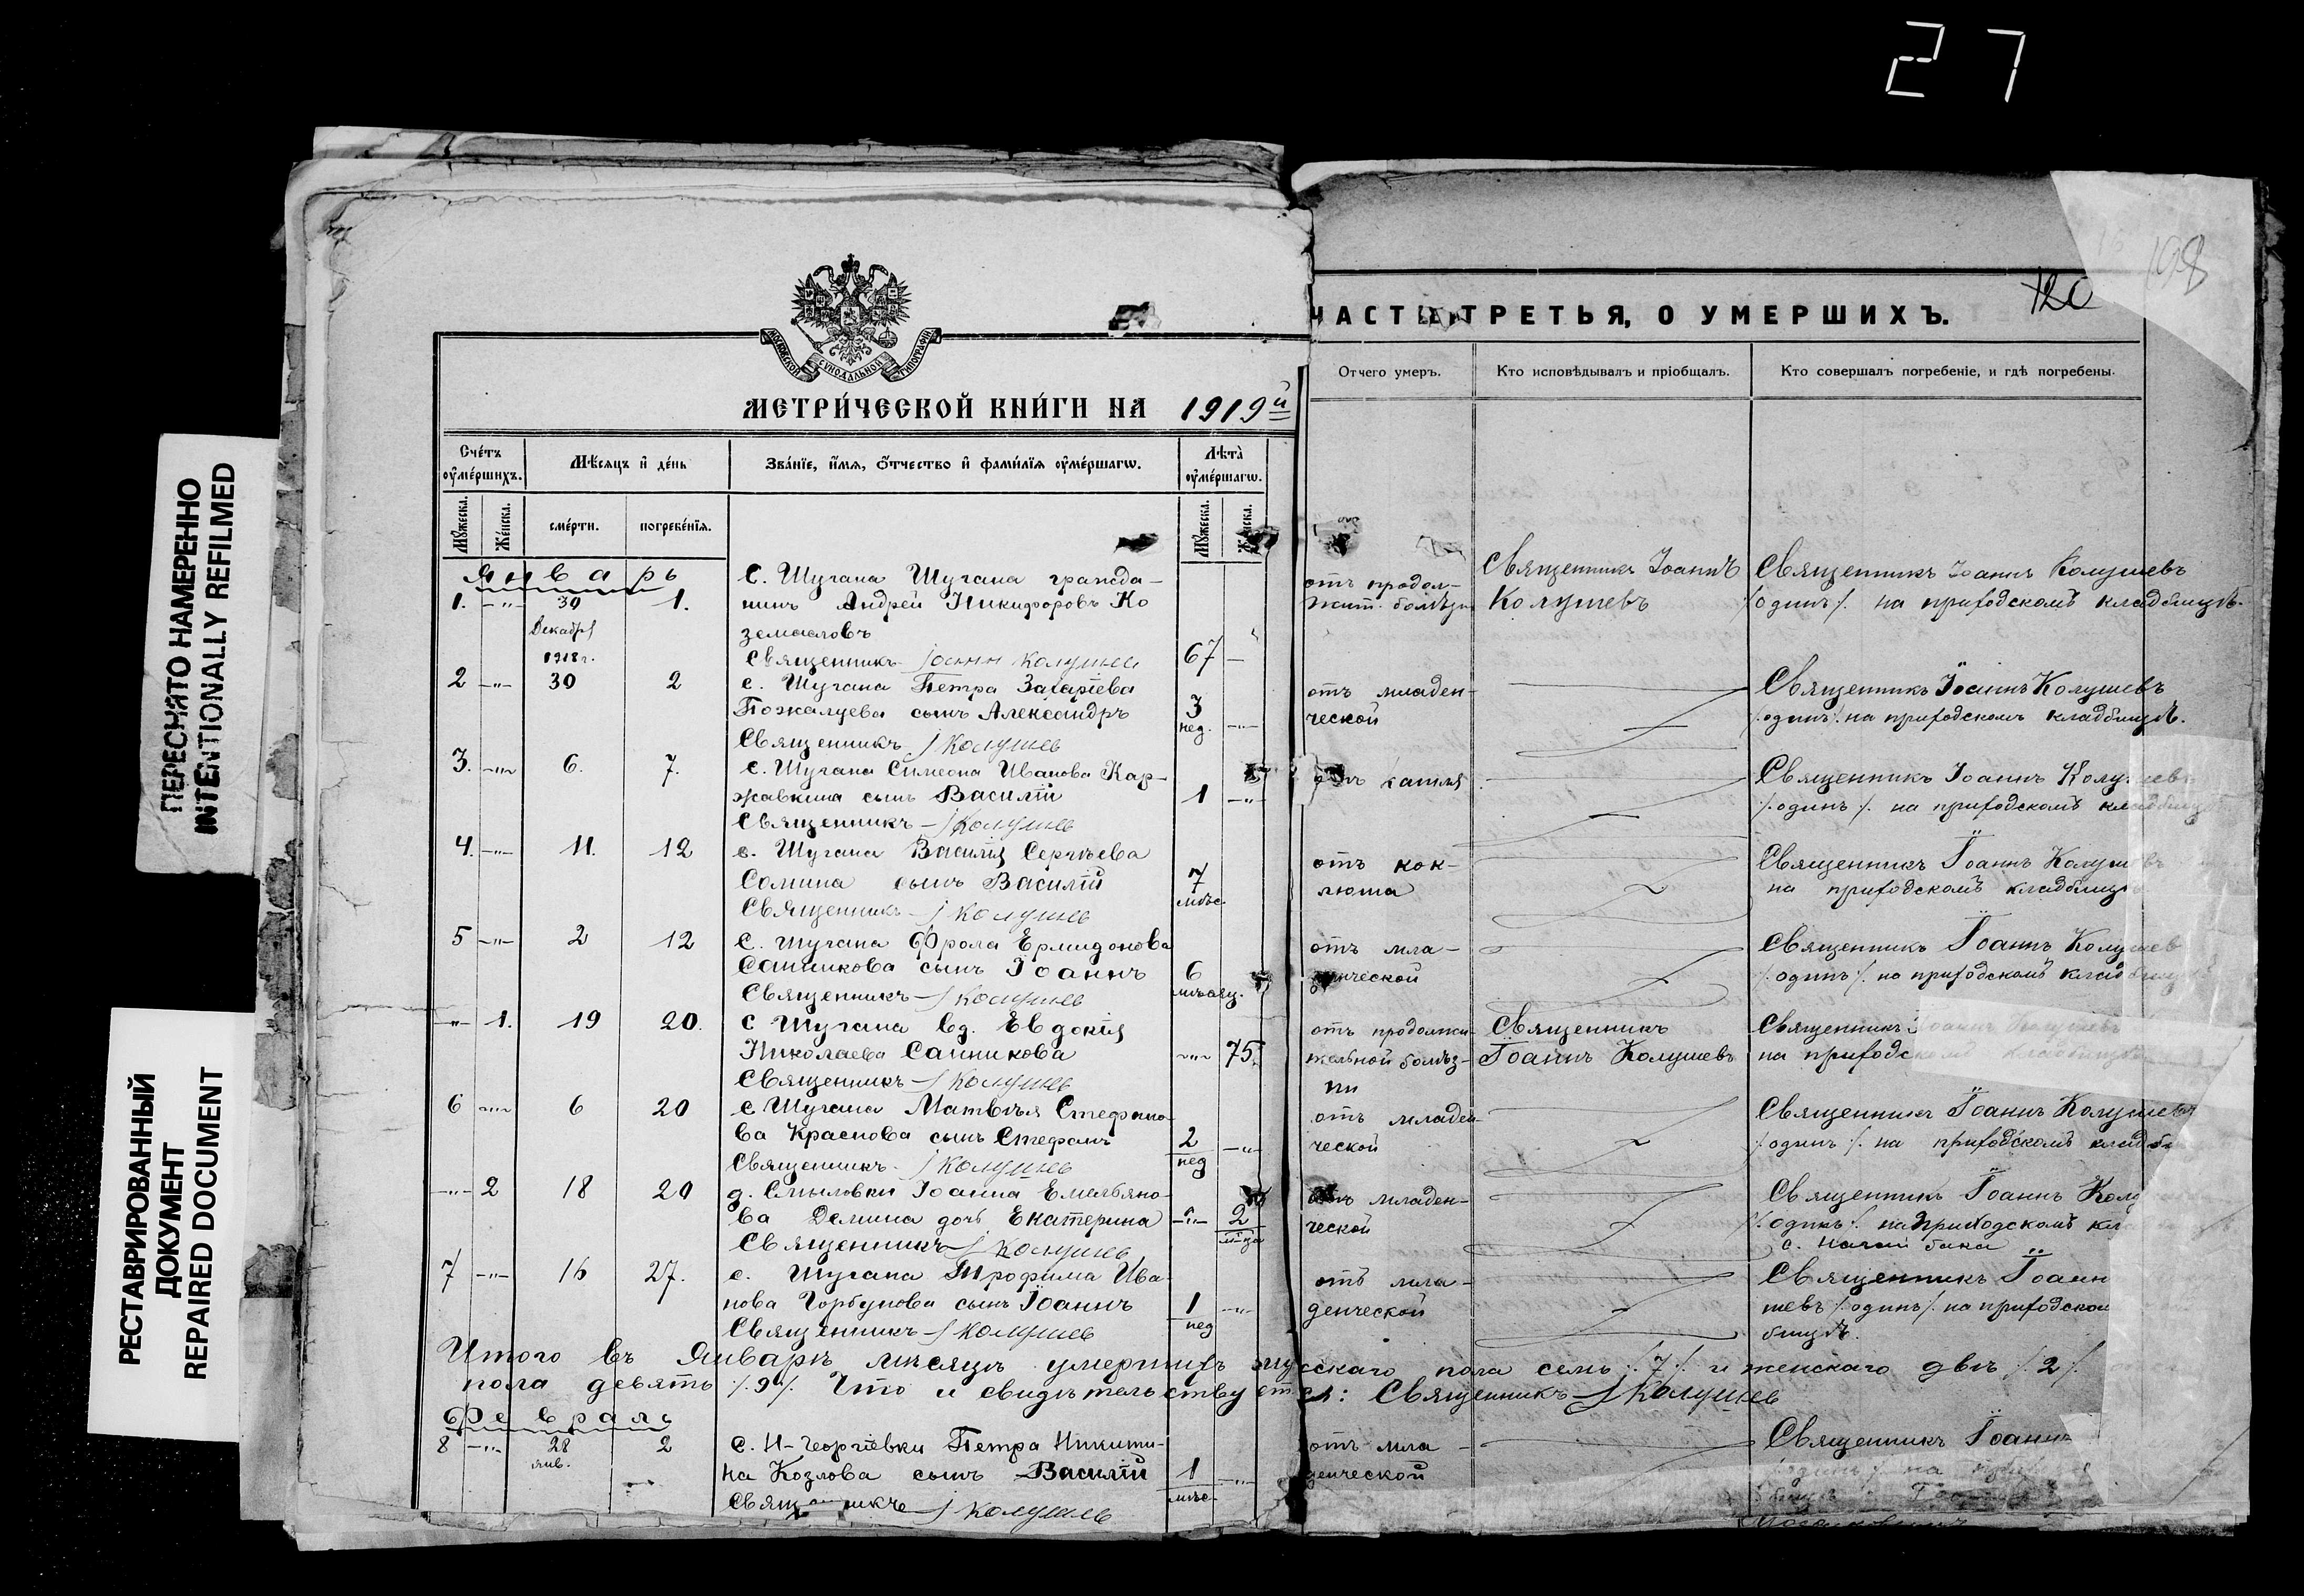 27
ПЕРЕСНЯТО НАМЕРЕННО
INTENTIONALLY REFILMED
РЕСТАВРИРОВАННЫЙ
ДОКУМЕНТ
REPAIRED DOCUMENT
МОСКОВСКОЙ СѴНОДАЛЬНОЙ ТИПОГРАФІИ
МЕТРИ́ЧЕСКОЙ КНИ́ГИ НА 1919й
ЧАСТЬ ТРЕТЬЯ, О УМЕРШИХЪ.
120
108
Сче́тъ ᲂу҆ме́ршихъ.
Мѣ́сяцъ и҆ де́нь
Зва́нїе, и҆́мя, ѻ҆́тчество и҆ фами́лїя ᲂу҆ме́ршагѡ.
Лѣта̀ ᲂу҆ме́ршагѡ.
Отчего умеръ.
Кто исповѣдывалъ и пріобщалъ.
Кто совершалъ погребеніе, и гдѣ погребены.
Мꙋ́жеска.
Же́нска.
сме́рти.
погребе́нїя.
Мꙋ́жеска.
Же́нска.
Январь
1. -"- 30 Декабр 1918 г. 1.
с. Шугана Шугана гражда-
нинъ Андрей Никифоровъ Ко
земасловъ
Священникъ Іоанн Колушев
67 -
отъ продол-
жит. болѣзн
Священникъ Іоаннъ
Колушевъ
Священникъ Іоаннъ Колушевъ
/:одинъ:/. на приходскомъ кладбищѣ.
2 -"- 30 2
с. Шугана Петра Захаріева
Пожалуева сынъ Александръ
Священникъ Колушев
3 нед. -"-
отъ младен-
ческой
Священникъ Іоаннъ Колушевъ
/:одинъ:/. на приходскомъ кладбищѣ.
3. -"- 6. 7.
с. Шугана Симеона Иванова Кар-
жавкина сынъ Василій
Священникъ Колушев
1 -"-
отъ кашля
Священникъ Іоаннъ
/:одинъ:/. на приходскомъ
4. -"- 11. 12
с. Шугана Василія Сергѣева
Сомина сынъ Василій
Священникъ Колушев
7 мѣс.
отъ кок-
люша
Священникъ Іоаннъ
на приходскомъ
5 -"- 2 12
с. Шугана Фрола Ермидонова
Санникова сынъ Іоаннъ
Священникъ Колушев
6 мѣсяц.
отъ мла-
Священникъ Іоаннъ
/:одинъ:/. на приходскомъ
-"- 1. 19 20.
с Шугана вд. Евдокія
Николаева Санникова
Священникъ Колушев
-"- 75.
отъ продолжи-
тельной болѣз-
ни
Священникъ
Іоаннъ Колушевъ
Священникъ
на приходс
6 -"- 6 20
с Шугана Матвѣя Стефано-
ва Краснова сынъ Стефанъ
Священникъ. Колушев
2 нед -"-
отъ младен-
ческой
Священникъ Іоаннъ Колушевъ
/:одинъ:/. на приходскомъ кладби
-"- 2 18 20
д. Смыловки Іоанна Емельяно-
ва Демина дочь Екатерина
Священникъ Колушев
-"- 2 м-ца
отъ младен-
ческой
Священникъ Іоаннъ
/:одинъ:/. на приходскомъ
с.
7 -"- 16 27.
с. Шугана Трофима Ива-
нова Горбунова сынъ Іоаннъ
Священникъ Колушев
1 нед -"-
отъ мла-
денческой
Священникъ Іоанн
шевъ /:одинъ:/. на приходском
бищѣ.
Итого въ Январѣ мѣсяцѣ умершихъ мужскаго пола семь /:7:/ и женскаго двѣ /:2:/
пола девять /:9:/. Что и свидѣтельствуется: Священникъ Колушев
Февраль
8 -"- 28 янв. 2
с. Н-Георгіевки Петра Никити-
на Козлова сынъ Василій
Священникъ Колушев
1 мѣс. -"-
отъ мла-
денческой
Священникъ Іоаннъ